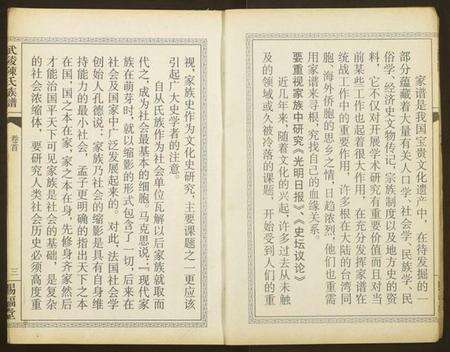 家谱是我国宝贵文化遗产中，在待发掘的一
部分蕴藏着大量有关人口学、社会学、民族学、民
俗学、经济史人物传记、宗族制度以及地方史的资
料，它不仅对开展学术研究有重要价值而且对当
前某些工作也起着很大作用，在充分发挥家谱在
统战工作中的重要作用，许多根在大陆的台湾同
胞，海外侨胞的思乡之情，日趋浓烈，他们也重需
用家谱来寻根，究找自己的血缘关系。
要重视家族中研究《光明日报》、《史坛议论》
近几年来，随着文化的兴起，许多过去从未触
及的领域或久被冷落的课题，开始受到人们的重
视，家族史作为文化史研究，主要课题之一更应该
引起广大史学者的注意。
自从氏族作为社会单位瓦解以后家族就取而
代之，成为社会最基本的细胞，马克思说：“现代家
族在萌芽时，就以缩影的形式包含了一切，后来在
社会及国家中广泛发展起来的。对此，法国社会学
创始人孔德说：家族乃社会的缩影是具有自身维
持能力的最小社会，孟子更明确的指出天下之本
在国，国之本在家，家之本在身，先修身齐家然后
才能治国平天下可见家族是社会的基础，是复杂
的社会浓缩体，要研究人类社会历史必须高度重
武陵陳氏族譜
卷首
三
賜福堂